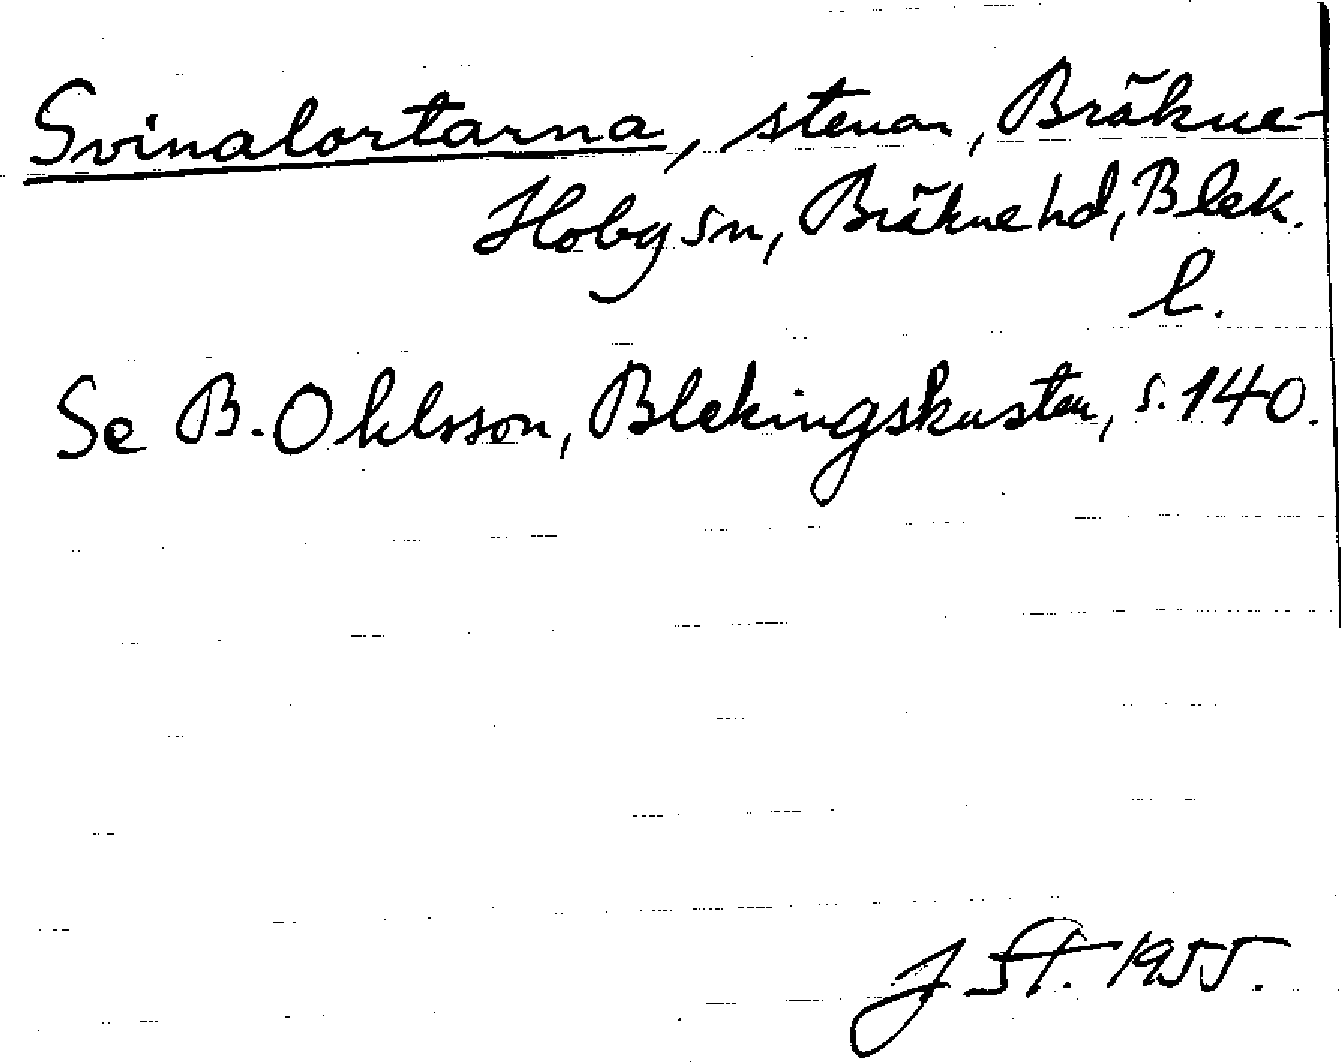 Svinalortarna, stenar, Bräkne-
Hoby sn, Bräkne hd, Blek.
l.
Se B. Ohlsson, Blekingskusten, s. 140.
J St. 1955.